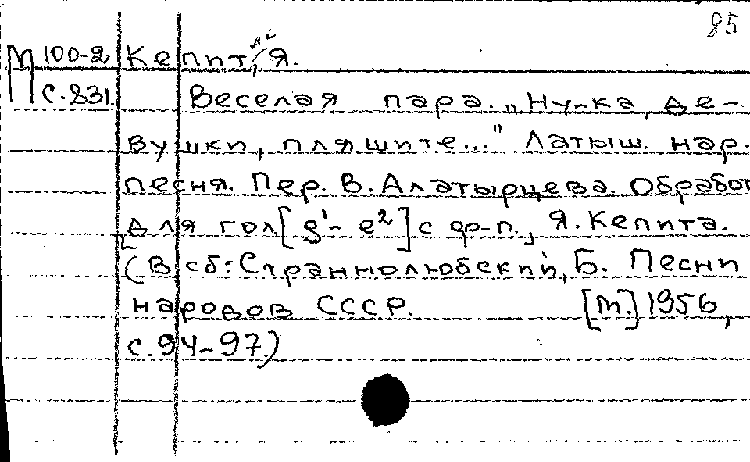 85
М 100-2 Кепит, Я.
с. 831. Веселая пара. „Ну-ка, де-
вушки, пляшите..." Латыш. нар.
песня. Пер. В. Алатырцева. Обработ
для гол [g¹- e²] с ф-п., Я. Кепита.
(В сб: Страннолюбский, Б. Песни
народов СССР. [М.] 1956,
с. 94-97)